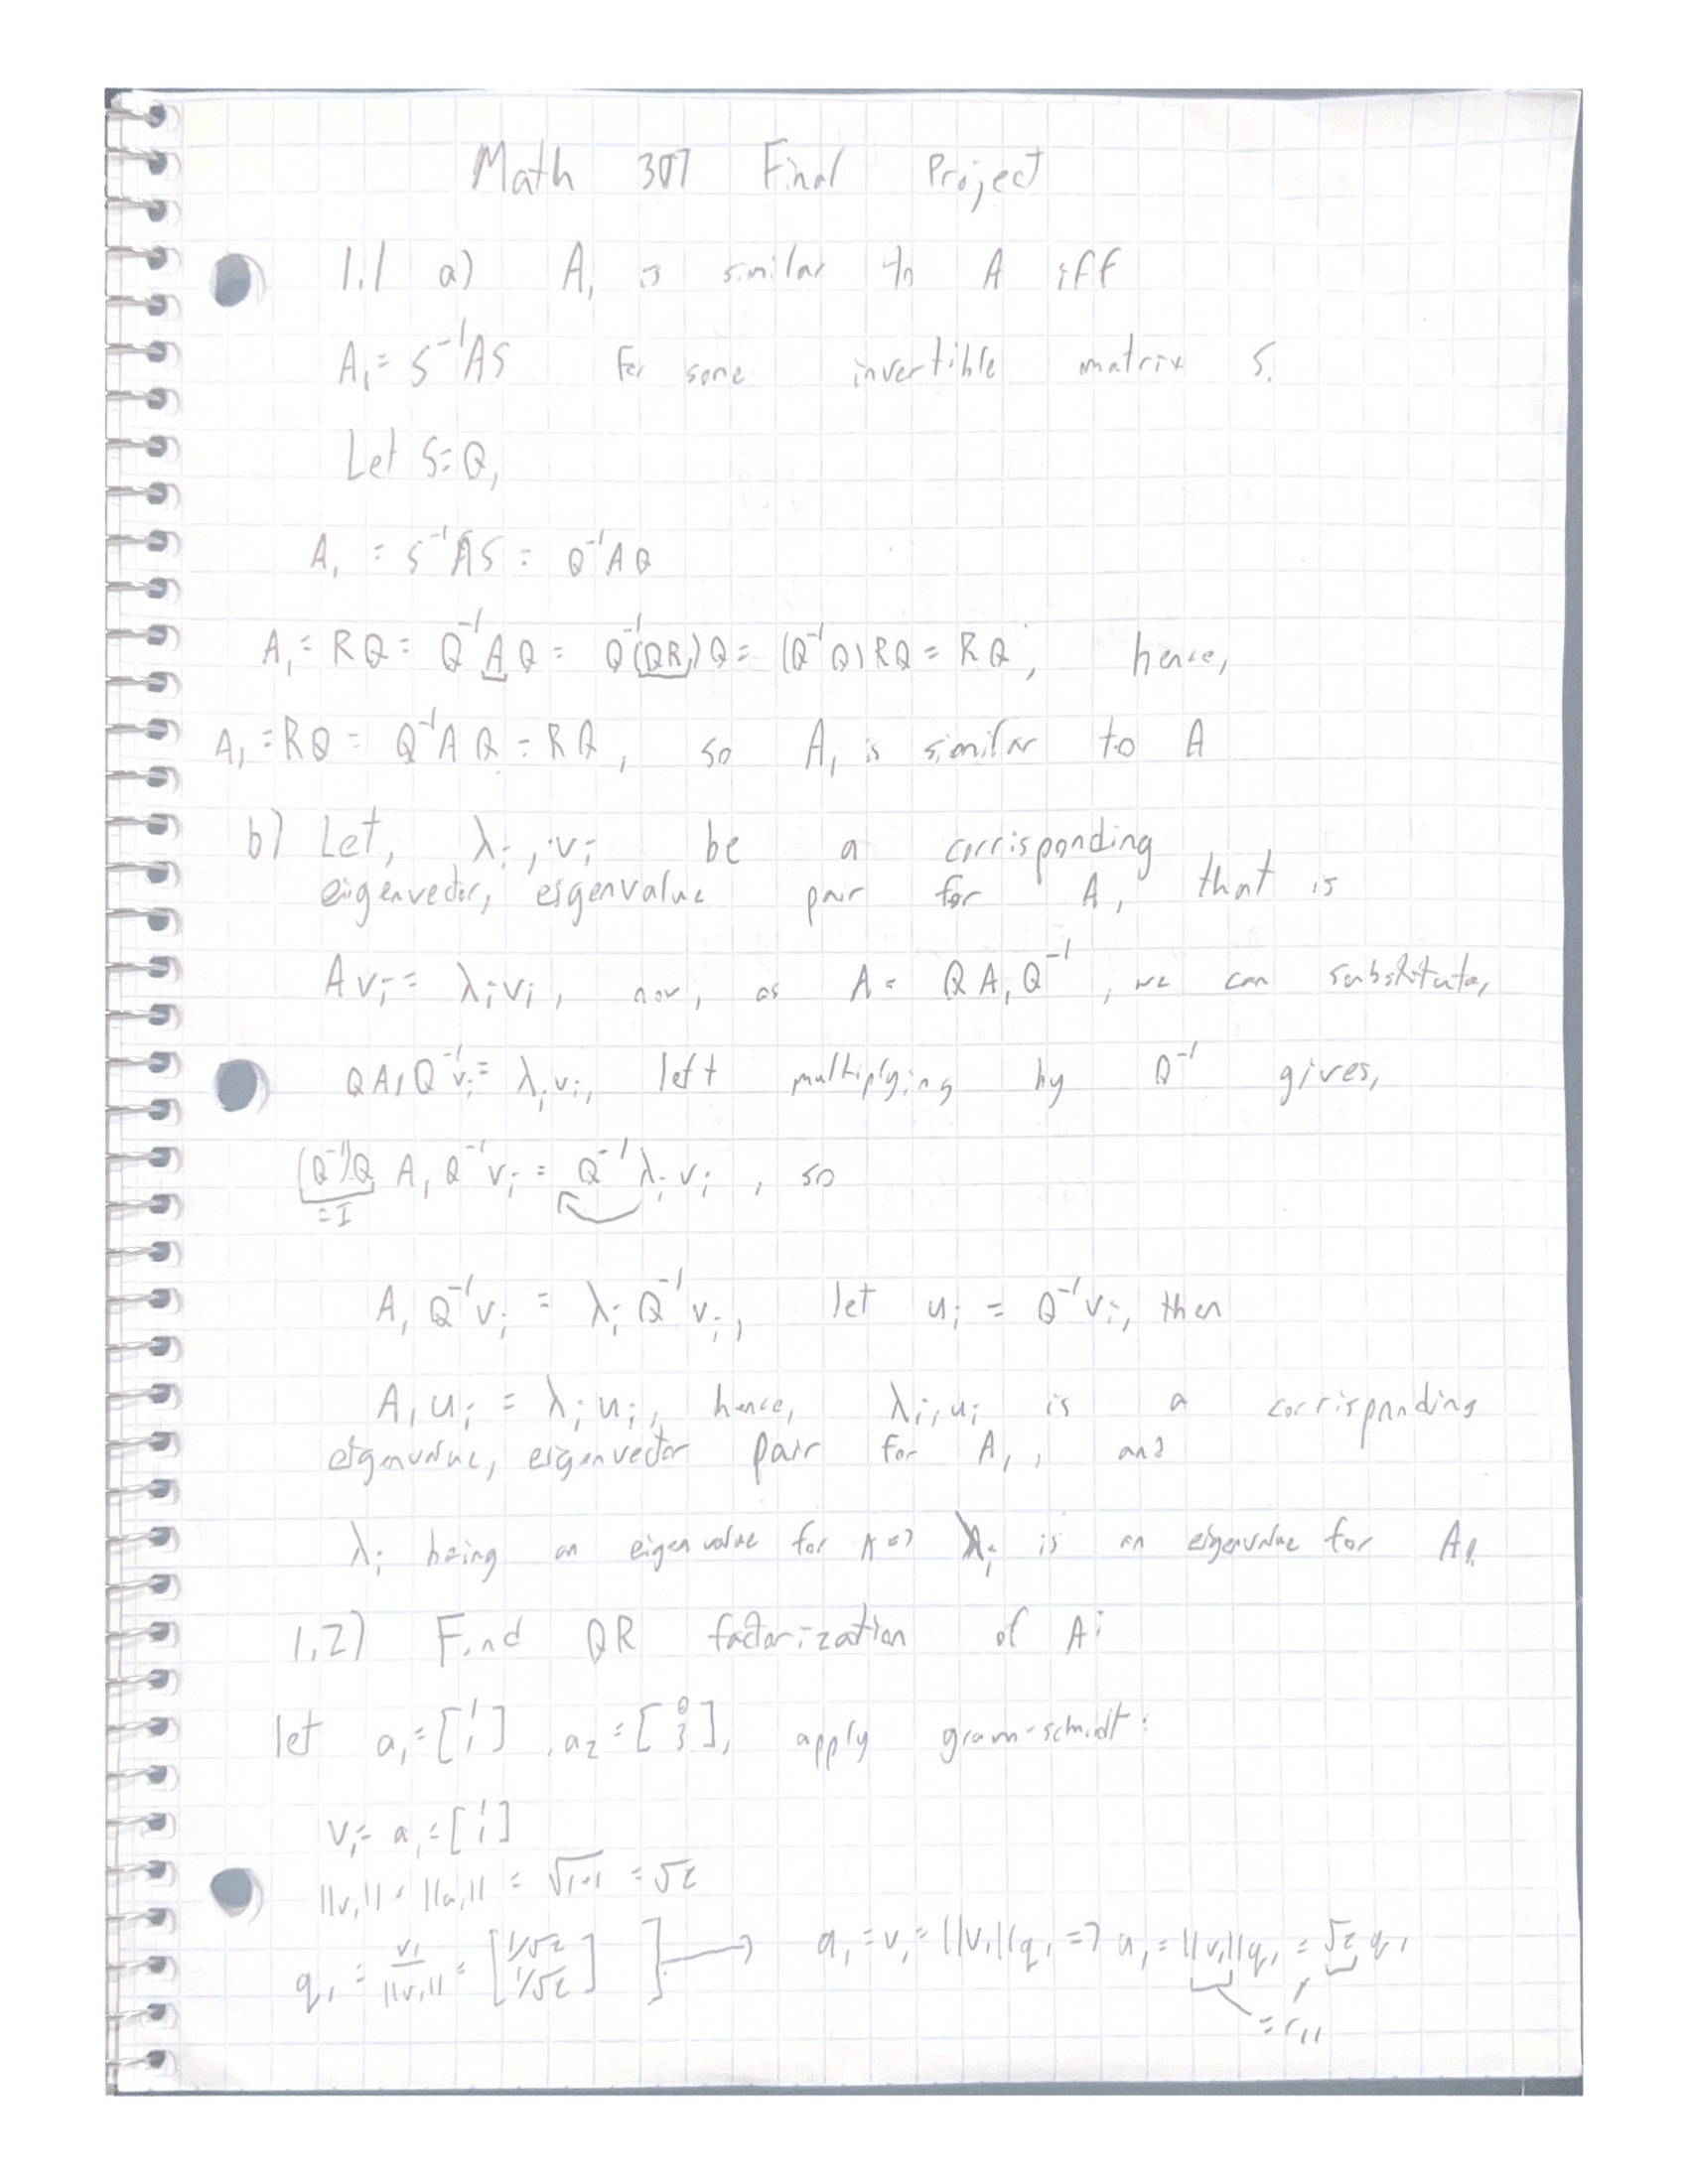 Math 307 Final Project
1.1 a) A₁ is similar to A iff
A₁ = S⁻¹AS for some invertible matrix S.
Let S=Q,
A₁ = S⁻¹AS = Q⁻¹AQ
A₁ = RQ = Q⁻¹AQ = Q⁻¹(QR)Q = (Q⁻¹Q)RQ = RQ, hence,
A₁ = RQ = Q⁻¹AQ = RQ, so A₁ is similar to A
b) Let, λᵢ, vᵢ be a corrisponding
eigenvector, eigenvalue pair for A, that is
Avᵢ = λᵢvᵢ, now, as A = QA₁Q⁻¹, we can substitute,
QA₁Q⁻¹vᵢ = λᵢvᵢ, left multiplying by Q⁻¹ gives,
(Q⁻¹)Q A₁Q⁻¹vᵢ = Q⁻¹λᵢvᵢ, so
=I
A₁Q⁻¹vᵢ = λᵢQ⁻¹vᵢ, let uᵢ = Q⁻¹vᵢ, then
A₁uᵢ = λᵢuᵢ, hence, λᵢ, uᵢ is a corrisponding
eigenvalue, eigenvector pair for A₁, and
λᵢ being an eigenvalue for A => λᵢ is an eigenvalue for A₁.
1.2) Find QR factorization of A:
let a₁ = [1 1], a₂ = [0 3], apply gram-schmidt:
v₁ = a₁ = [1 1]
||v₁|| = ||a₁|| = √1+1 = √2
q₁ = v₁/||v₁|| = [1/√2 1/√2] ] → a₁ = v₁ = ||v₁||q₁ => a₁ = ||v₁||q₁ = √2 q₁
= r₁₁